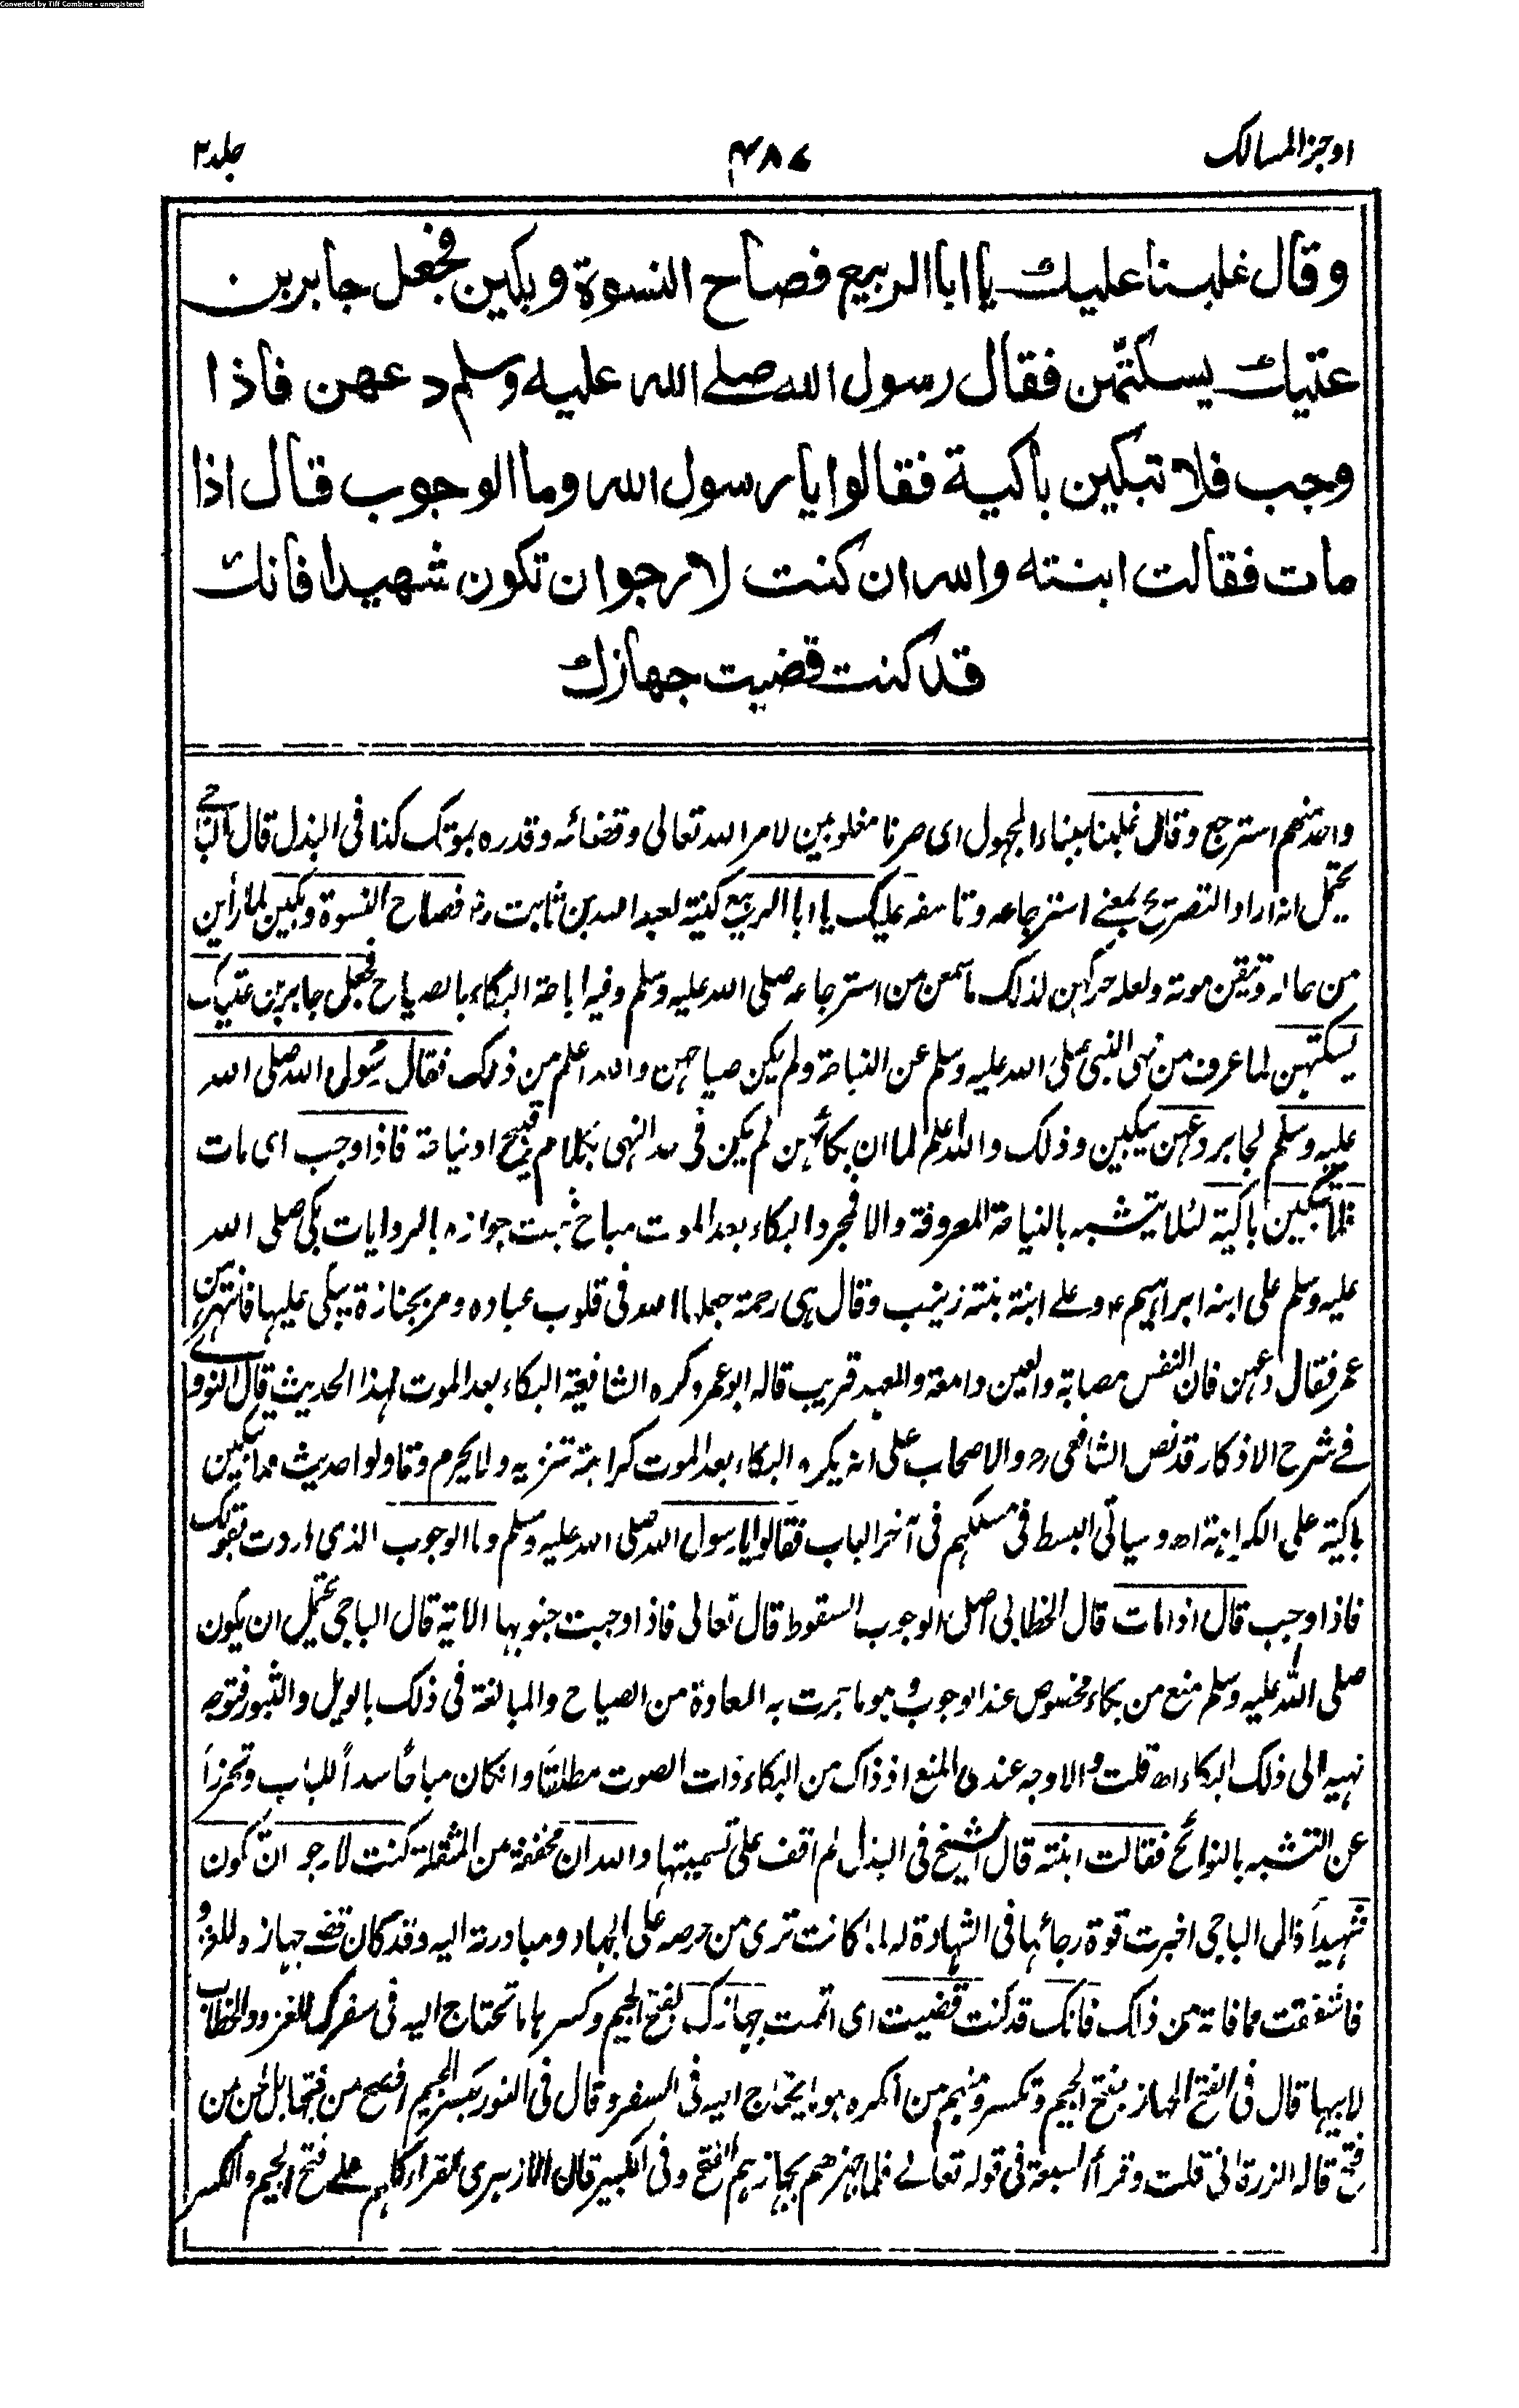 Converted by Tiff Combine - unregistered
اوجز المسالک
۴۸۷
جلد۲
وقال غلبنا عليك يا ابا الربيع فصاح النسوة وبكين فجعل جابر بن
عتيك يسكتهن فقال رسول الله صلى الله عليه وسلم دعهن فاذا
وجب فلا تبكين باكية فقالوا يا رسول الله وما الوجوب قال اذا
مات فقالت ابنته والله ان كنت لارجوا ان تكون شهيدا فانك
قد كنت قضيت جهازك
واحد منهم استرجع وقال غلبنا ببناء المجهول اى صرنا مغلوبين لامر الله تعالى وقضائه وقدره بموتك كذا فى البذل قال الباجى
يحتمل انه اراد التصريح بمعنى استرجاعه وتاسفه عليك يا ابا الربيع كنية لعبد الله بن ثابت رض فصاح النسوة وبكين لما رأين
من حاله وتيقن موته ولعله حركهن لذلك ما سمعن من استرجاعه صلى الله عليه وسلم وفيه اباحة البكاء بالصياح فجعل جابر بن عتيك
يسكتهن لما عرف من نهى النبى صلى الله عليه وسلم عن النياحة ولم يكن صياحهن والله اعلم من ذلك فقال رسول الله صلى الله
عليه وسلم لجابر دعهن يبكين وذلك والله اعلم لما ان بكائهن لم يكن فى حد النهى بكلام قبيح او نياحة فاذا وجب اى مات
فلا تبكين باكية لئلا يتشبه بالنياحة المعروفة والا فمجرد البكاء بعد الموت مباح ثبت جوازه بالروايات بكى صلى الله
عليه وسلم على ابنه ابراهيم ع وعلى ابنة بنته زينب وقال هى رحمة جعلها الله فى قلوب عباده ومر بجنازة يبكى عليها فانتهرهن
عمر فقال دعهن فان النفس مصابة والعين دامعة والعهد قريب قاله ابو عمر وكره الشافعية البكاء بعد الموت لهذا الحديث قال النووى
فى شرح الاذكار قد نص الشافعى رح والاصحاب على انه يكره البكاء بعد الموت كراهة تنزيه ولا يحرم وتاولوا حديث فلا تبكين
باكية على الكراهة اھ وسياتى البسط فى مسلكهم فى آخر الباب فقالوا يا رسول الله صلى الله عليه وسلم وما الوجوب الذى اردت بقولك
فاذا وجب قال اذا مات قال الخطابى اصل الوجوب السقوط قال تعالى فاذا وجبت جنوبها الآية قال الباجى يحتمل ان يكون
صلى الله عليه وسلم منع من بكاء مخصوص عند الوجوب وهو ما جرت به العادة من الصياح والمبالغة فى ذلك بالويل والثبور فتوجه
نهيه الى ذلك البكاء اھ قلت والاوجه عندى المنع اذ ذاك من البكاء ذات الصوت مطلقاً وان كان مباحاً سداً للباب وتحرزاً
عن التشبه بالنوائح فقالت ابنته قال الشيخ فى البذل لم اقف على تسميتها والله ان مخففة من المثقلة كنت لارجو ان تكون
شهيداً قال الباجى اخبرت قوة رجائها فى الشهادة له لما كانت ترى من حرصه على الجهاد ومبادرته اليه وقد كان قضى جهازه للغزو
فاشفقت مما فاته من ذلك فانك قد كنت قضيت اى اتممت جهازك بفتح الجيم وكسرها ما تحتاج اليه فى سفرك للغزو والخطاب
لابيها قال فى الفتح الجهاز بفتح الجيم وتكسر ومنهم من انكره هو ما يحتاج اليه فى السفر وقال فى النور بكسر الجيم افصح من فتحها بل لحن من
فتح قاله الزرقانى قلت وقرأ السبعة فى قوله تعالى فلما جهزهم بجهازهم بالفتح وفى الكبير قال الازهرى القراء كلهم على فتح الجيم والكسر